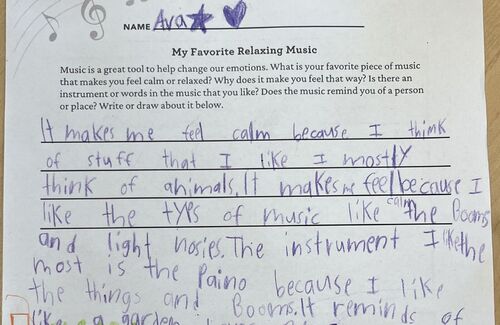 NAME Ava
My Favorite Relaxing Music
Music is a great tool to help change our emotions. What is your favorite piece of music
that makes you feel calm or relaxed? Why does it make you feel that way? Is there an
instrument or words in the music that you like? Does the music remind you of a person
or place? Write or draw about it below.
It makes me feel calm because I think
of stuff that I like I mostly
think of animals. It makes me feel because I
calm
like the typs of music like the Booms
and light nosies. The instrument I like the
most is the Paino because I like
the things and Booms. It reminds of
like a garden